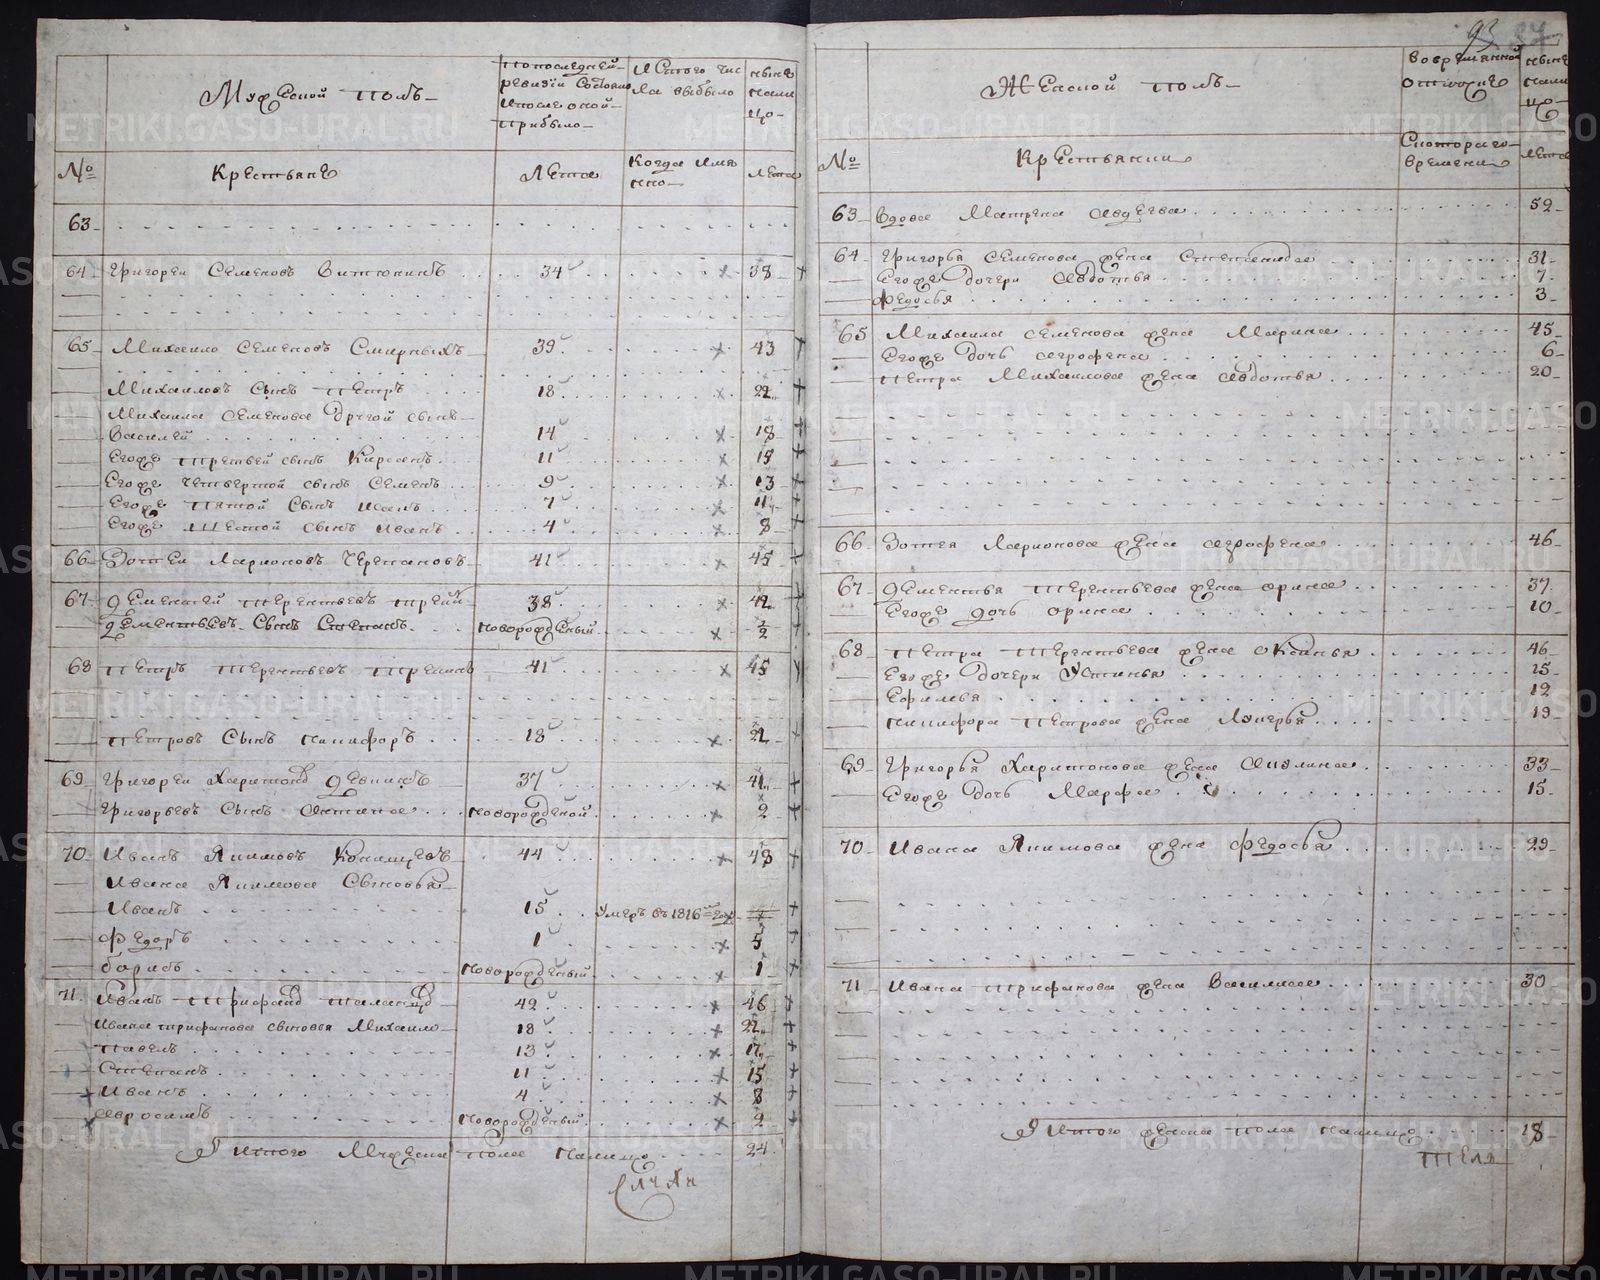 Мужеской полъ
По последней
ревизiи состояло
и после оной
прибыло
Исъ того чис
ла выбыло
ныне
нали
цо
№
Крестьяне
Лета
Когда имян
но
лета
63
64 Григореи Семеновъ 34 38
65 Михаило Семеновъ Смирныхъ 39 43
Михаиловъ сынъ Петръ 18 22
Михаила Семенова другой сынъ
Василей 14 18
Егоже третьей сынъ 11 15
Егоже четвертой сынъ Семенъ 9 13
Егоже пятой сынъ Иванъ 7 11
Егоже шестой сынъ Иванъ 4 8
66 Зотеи Ларионовъ Черепановъ 41 45
67 Дементей Терентьевъ 38 42
Дементьевъ сынъ Степанъ новорожденый 1/2
68 Петръ Терентьевъ 41 45
Петровъ сынъ Никифоръ 18 22
69 Григореи Харитоновъ 37 41
Григорьевъ сынъ новорожденой 2
70 Иванъ Якимовъ 44 48
Ивана Якимова сыновья
Иванъ 15 умеръ въ 1816 году
Федоръ 1 5
Борисъ новорожденый 1
71 Иванъ Трифановъ 42 46
Ивана Трифанова сыновья Михаило 18 22
Павелъ 13 17
Степанъ 11 15
Иванъ 4 8
новорожденый 2
Итого мужеска пола налицо 24
93
Женской полъ
во времянной
отлучке
ныне
нали
цо
№
Крестьянки
Съ котораго
времени
лета
63 вдова Матрена Авдеева 52
64 Григорья Семенова жена Степанида 31
Егоже дочери Авдотья 7
Федосья 3
65 Михаила Семенова жена Марина 45
Егоже дочь Аграфена 6
Петра Михаилова жена Авдотья 20
66 Зотея Ларионова жена Аграфена 46
67 Дементья Терентьева жена Орина 37
Егоже дочь Орина 10
68 Петра Терентьева жена Оксинья 46
Егоже дочери Устинья 15
Ефимья 12
Никифора Петрова жена Лукерья 19
69 Григорья Харитонова жена Акулина 33
Егоже дочь Марфа 15
70 Ивана Якимова жена Федосья 29
71 Ивана Трифанова жена Василиса 30
Итого женска пола налицо 18
METRIKI.GASO-URAL.RU